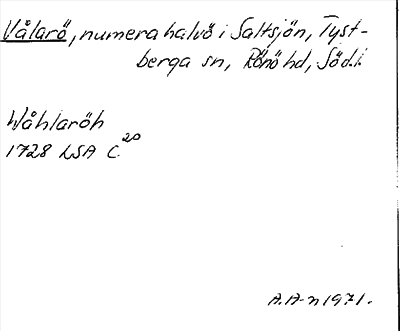 Vålarö, numera halvö i Saltsjön, Tyst-
berga sn, Rönö hd, Söd.l.
Wåhlaröh
1728 LSA C 20
A.A-n 1971.